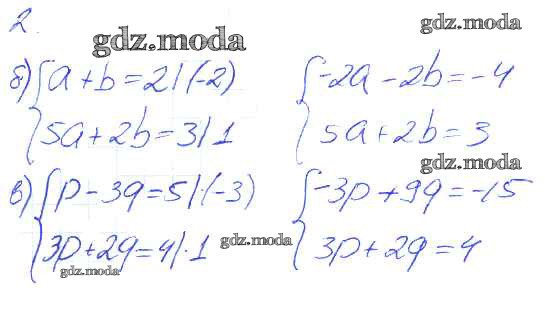 2.
gdz.moda
gdz.moda
б) { a + b = 2 | (-2)      { -2a - 2b = -4
{ 5a + 2b = 3 | 1      { 5a + 2b = 3
gdz.moda
в) { p - 3q = 5 | ·(-3)      { -3p + 9q = -15
{ 3p + 2q = 4 | · 1      { 3p + 2q = 4
gdz.moda
gdz.moda